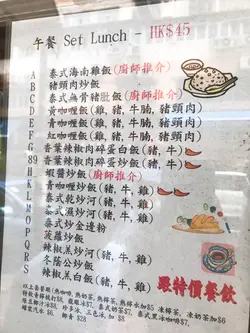 午餐 Set Lunch - HK$45
A 泰式海南雞飯(廚師推介)
B 豬頸肉炒飯
C 泰式無骨豬肶飯(廚師推介)
D 黃咖喱飯(雞, 豬, 牛腩, 豬頸肉)
E 紅咖喱飯(雞, 豬, 牛腩, 豬頸肉)
F 青咖喱飯(雞, 豬, 牛腩, 豬頸肉)
G 香葉辣椒肉碎蛋白飯(豬, 牛)
89 香葉辣椒肉碎蛋炒飯(豬, 牛)
H 蝦醬炒飯(廚師推介)
K 青咖喱炒飯(豬, 牛, 雞)
L 泰式乾炒河(豬, 牛, 雞)
A 泰式濕炒河(豬, 牛, 雞)
O 泰式炒金邊粉
P 菠蘿炒飯
Q 辣椒黑白飯(豬, 牛, 雞)
R 冬蔭公炒飯
S 辣椒蛋白飯(豬, 牛, 雞)
跟特價餐飲